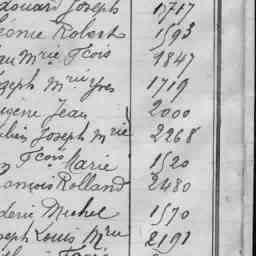 douard Joseph 1717
éonie Robert 1593
au Mrie Fçois 1847
seph Mrie Yves 1719
ugène Jean 2000
ulien Joseph Mrie 2268
Fçois Marie 1520
ançois Rolland 2480
édéric Michel 1570
seph Louis Mrie 2191